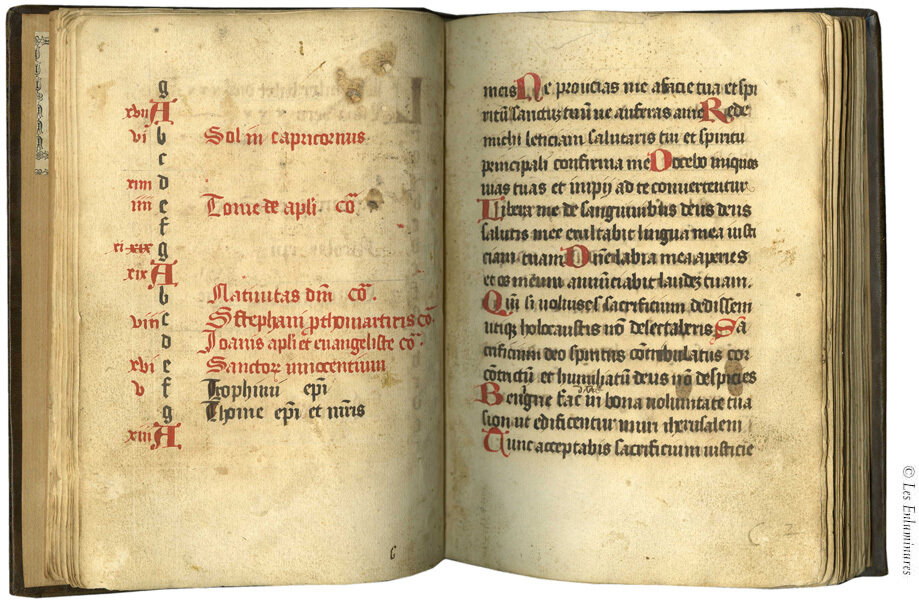 g
xvii A
vi b Sol in capricornus
c
xiiii d
iiii e Tome de apli cō
f
xi xix g
xix A
b Natiuitas dn̄i cō.
viii c S stephani p̄thomartiris cō
d Joanis apli et euangeliste cō.
xvi e Sanctoꝝ innocentium
v f Trophimi ep̄i
g Thome ep̄i et mr̄is
xiii A
6
meis Ne proicias me afacie tua et spi
ritū sanctū tuū ne auferas ame Rede
michi leticiam salutaris tui et spiritu
principali confirma me Docebo iniquos
uias tuas et impij ad te conuertentur
Libera me de sanguinibus deus deus
salutis mee exultabit lingua mea iusti
ciam tuam Dn̄e labia mea aperies
et os meum annunciabit laudeꝫ tuam.
Qm̄ si uoluisses sacrificium dedissem
utiqꝫ holocaustis nō delectaberis Sa
crificium deo spiritus cōtribulatus cor
cōtrictū et humiliatū deus nō despicies
Benigne fac dn̄e in bona uoluntate tua
sion ut edificentur muri iherusalem
Tunc acceptabis sacrificium iusticie
C 2
© Les Enluminures